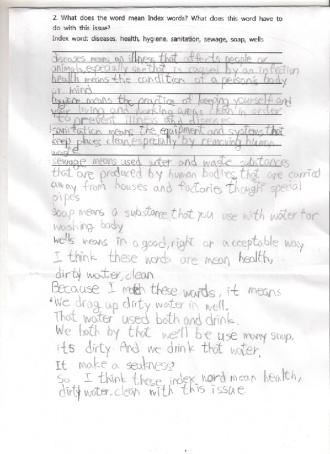 2. What does the word mean Index words? What does this word have to
do with this issue?
Index word: diseases, health, hygiene, sanitation, sewage, soap, wells
diseases means an illness that affects people or
animals, especially one that is caused by an infection
health means the condition of a person's body
or mind.
hygiene means the practice of keeping yourself and
your living and working areas clean in order
to prevent illness and disease
sanitation means the equipment and systems that
keep places clean, especially by removing human
waste
sewage means used water and waste substances
that are produced by human bodies that are carried
away from houses and factories though special
pipes
soap means a substance that you use with water for
washing body
wells means in a good, right or acceptable way
I think these words are mean health,
dirty water, clean
Because I these words, it means
"We drag up dirty water in well.
That water used both and drink.
We both by that we'll be use many soap.
its dirty. And we drink that water.
It make a seakness"
So I think these index word mean health,
dirty water, clean with this issue